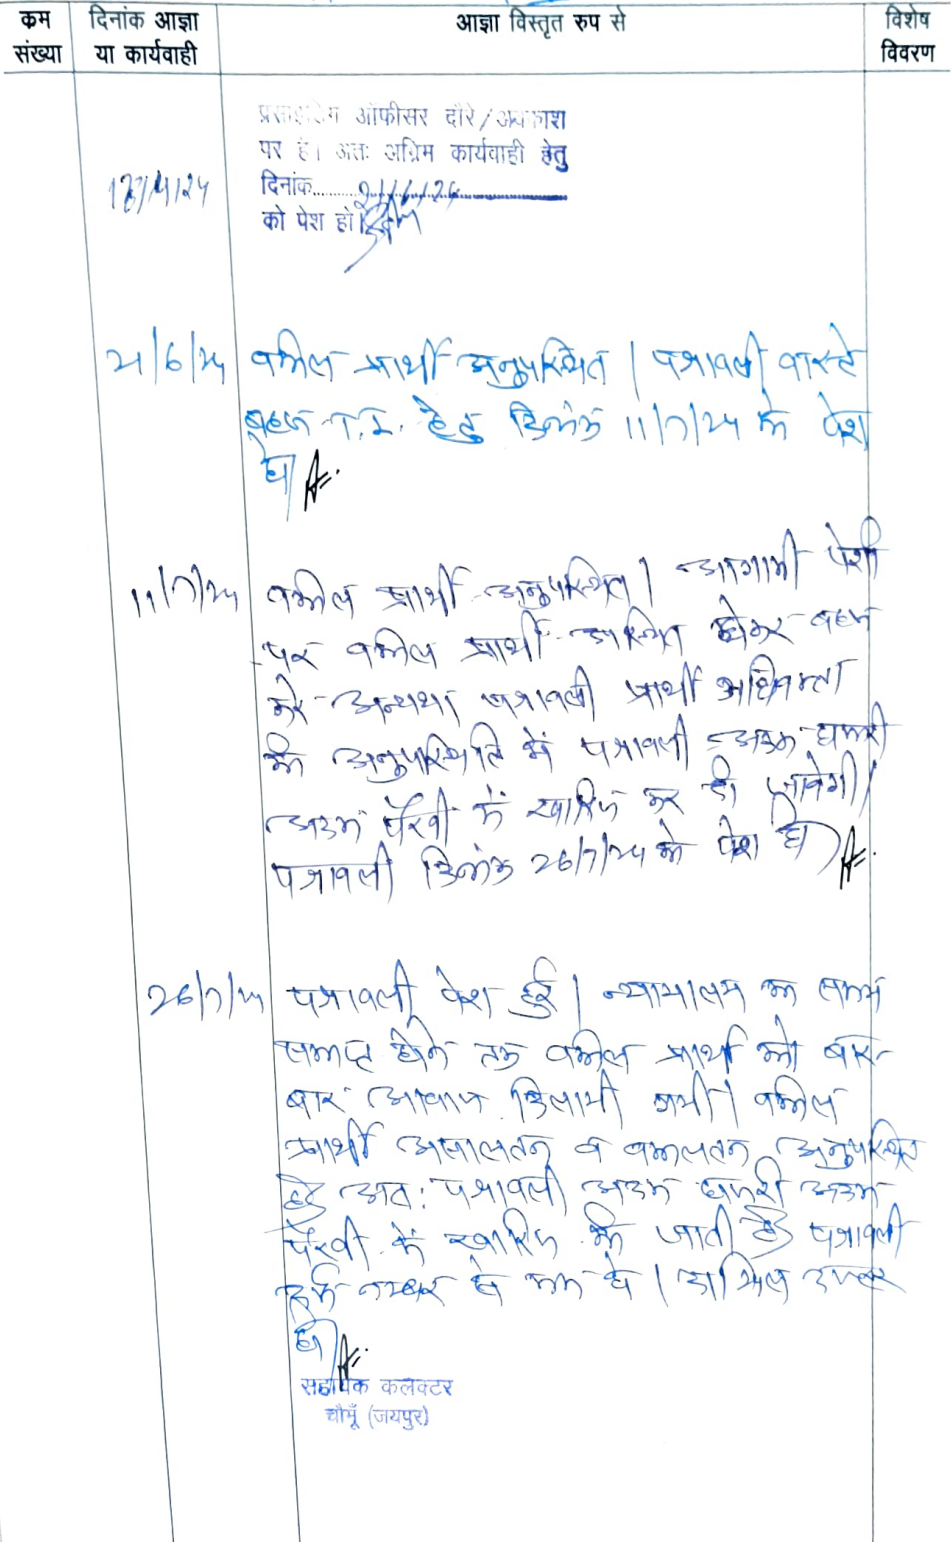 क्रम संख्या
दिनांक आज्ञा या कार्यवाही
आज्ञा विस्तृत रुप से
विशेष विवरण
प्रसाइडिंग ऑफीसर दौरे/अवकाश
पर है। अतः अग्रिम कार्यवाही हेतु
दिनांक.........21/6/24
को पेश हो।
21/6/24 वकील प्रार्थी अनुपस्थित। पत्रावली वास्ते
बहस T.I. हेतु दिनांक 11/7/24 को पेश
हो।
11/7/24 वकील प्रार्थी अनुपस्थित। आगामी पेशी
पर वकील प्रार्थी उपस्थित होकर बहस
करे अन्यथा पत्रावली प्रार्थी अधिवक्ता
की अनुपस्थिति में पत्रावली अदम हाजरी
अदम पैरवी में खारिज कर दी जावेगी।
पत्रावली दिनांक 26/7/24 को पेश हो।
26/7/24 पत्रावली पेश हुई। न्यायालय का समय
समाप्त होने तक वकील प्रार्थी को बार-
बार आवाज दिलायी गयी। वकील
प्रार्थी असालतन व वकालतन अनुपस्थित
है अत: पत्रावली अदम हाजरी अदम
पैरवी में खारिज की जाती है पत्रावली
नम्बर से कम हो। दाखिल दफ्तर
हो।
सहायक कलक्टर
चौमूँ (जयपुर)